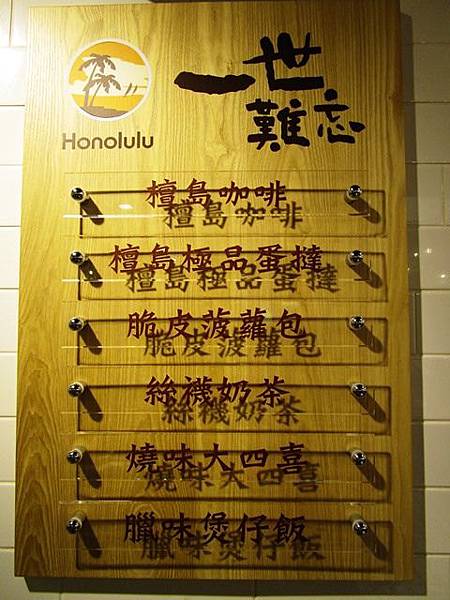 Honolulu
一世
難忘
檀島咖啡
檀島極品蛋撻
脆皮菠蘿包
絲襪奶茶
燒味大四喜
臘味煲仔飯